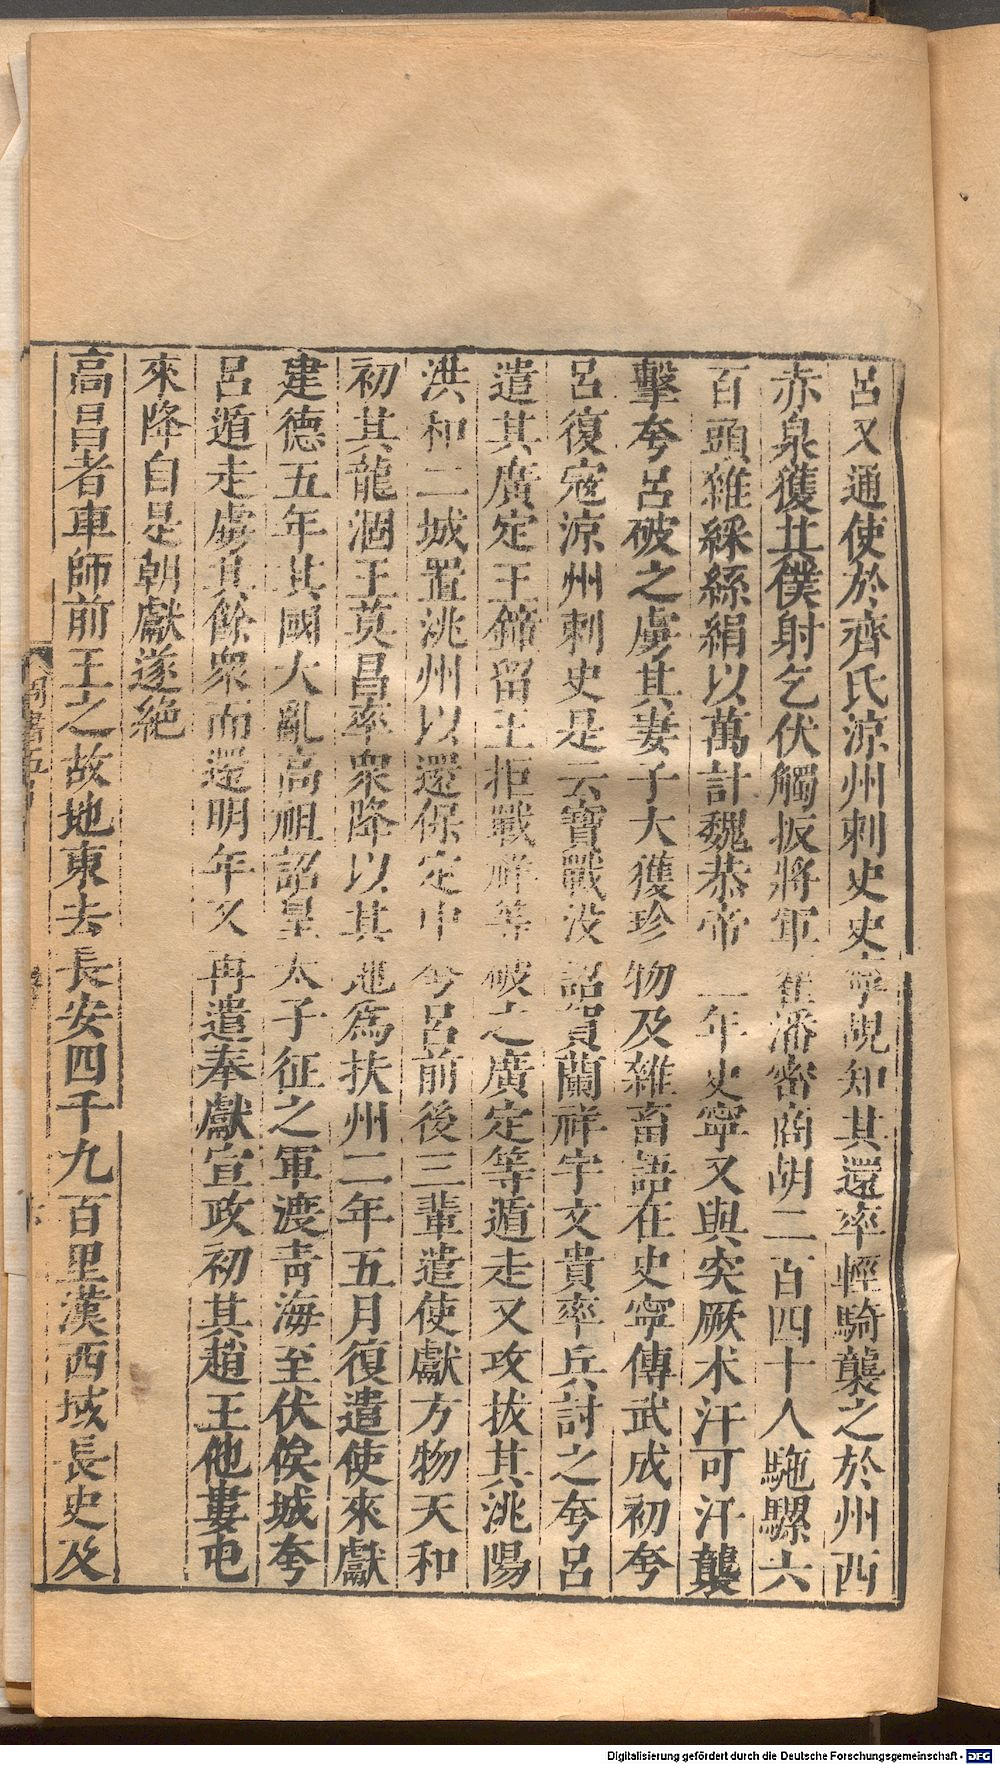 呂又通使於齊氏涼州刺史史寧覘知其還率輕騎襲之於州西
赤泉獲其僕射乞伏觸扳將軍翟潘密商胡二百四十人駞騾六
百頭雜綵絲絹以萬計魏恭帝二年史寧又與突厥木汗可汗襲
擊夸呂破之虜其妻子大獲珍物及雜畜語在史寧傳武成初夸
呂復寇涼州刺史是云寶戰沒詔賀蘭祥宇文貴率兵討之夸呂
遣其廣定王鍾留王拒戰祥等破之廣定等遁走又攻拔其洮陽
洪和二城置洮州以還保定中夸呂前後三輩遣使獻方物天和
初其龍涸王莫昌率衆降以其地爲扶州二年五月復遣使來獻
建德五年其國大亂高祖詔皇太子征之軍渡青海至伏俟城夸
呂遁走虜其餘衆而還明年又再遣奉獻宣政初其趙王他婁屯
來降自是朝獻遂絕
高昌者車師前王之故地東去長安四千九百里漢西域長史及
周書五
Digitalisierung gefördert durch die Deutsche Forschungsgemeinschaft - DFG